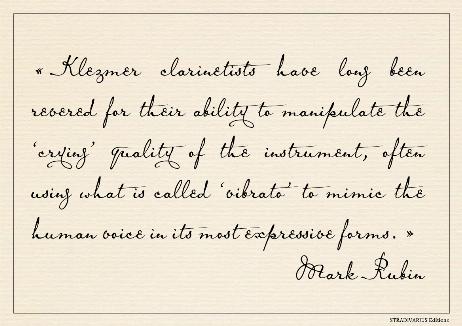 « Klezmer clarinetists have long been
revered for their ability to manipulate the
‘crying’ quality of the instrument, often
using what is called ‘vibrato’ to mimic the
human voice in its most expressive forms. »
Mark Rubin
STRADIVARIUS Editions